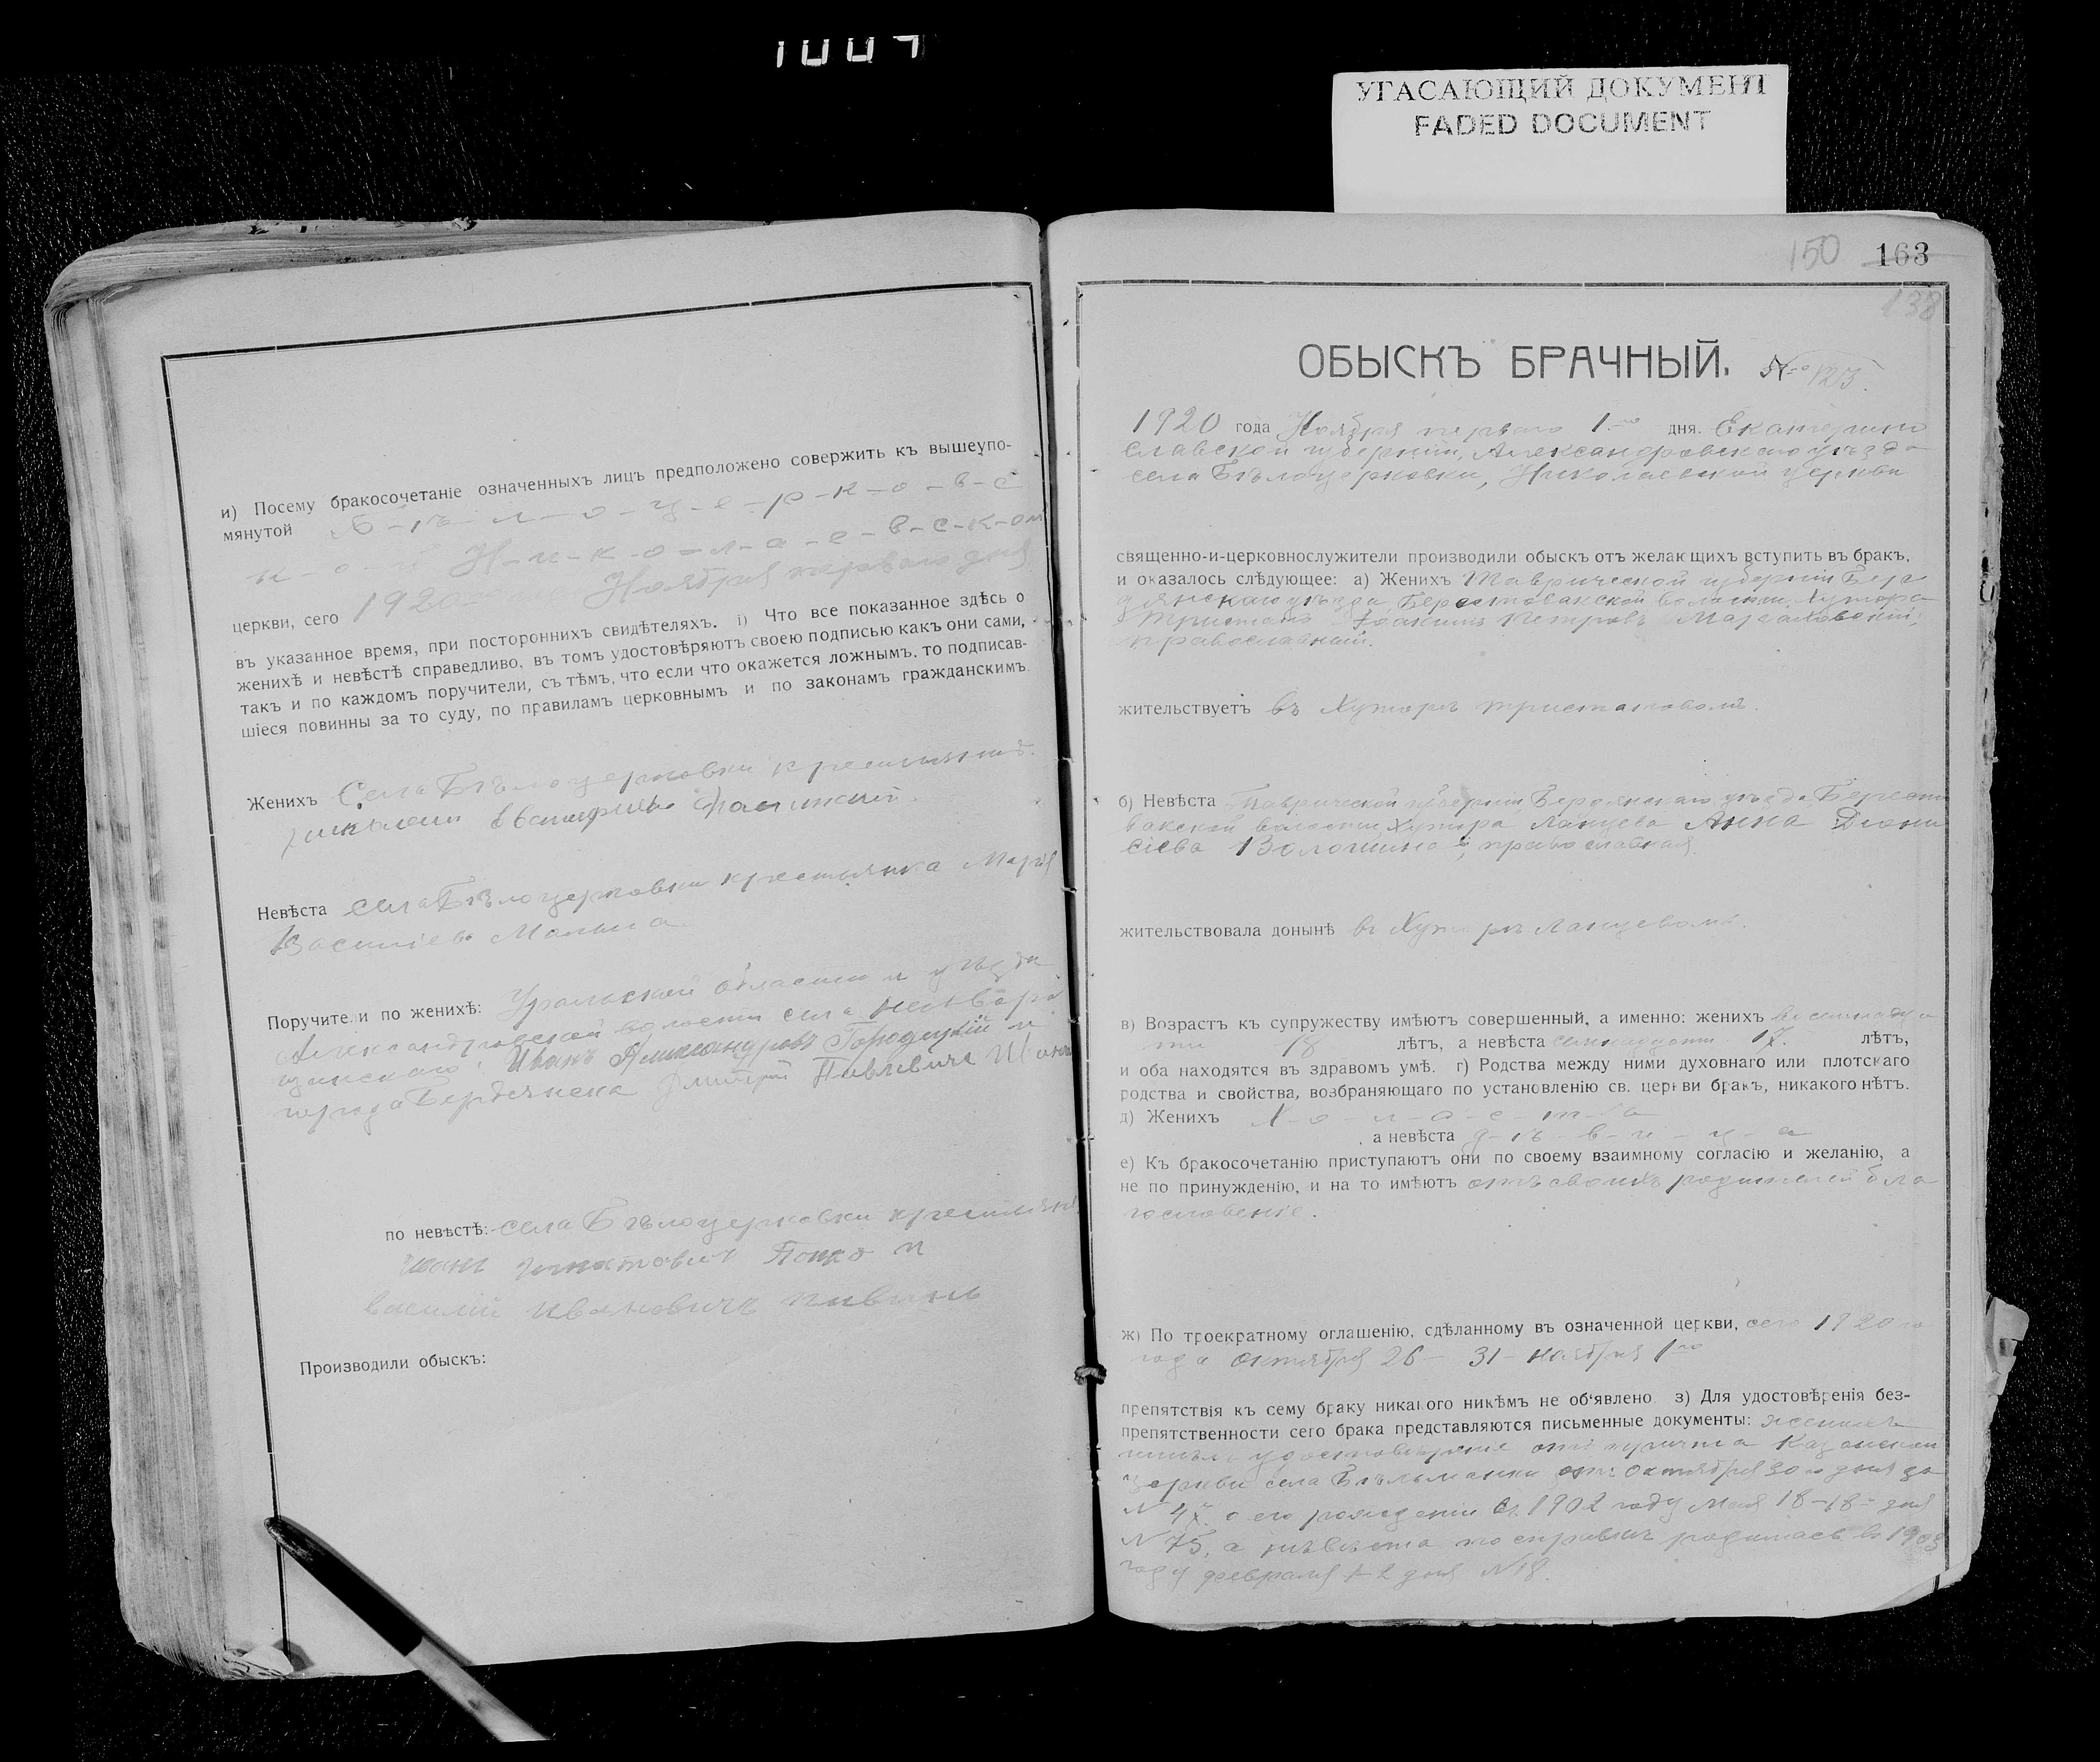 1004
УГАСАЮЩИЙ ДОКУМЕНТ
FADED DOCUMENT
и) Посему бракосочетаніе означенныхъ лицъ предположено совержить къ вышеупо-
мянутой Б-ѣ-л-о-ц-е-р-к-о-в-с
к-о-й Н-и-к-о-л-а-е-в-с-к-ой
церкви, сего 1920 Ноября перваго дня
въ указанное время, при постороннихъ свидѣтеляхъ. і) Что все показанное здѣсь о
женихѣ и невѣстѣ справедливо, въ томъ удостовѣряютъ своею подписью какъ они сами,
такъ и по каждомъ поручители, съ тѣмъ, что если что окажется ложнымъ, то подписав-
шіеся повинны за то суду, по правиламъ церковнымъ и по законамъ гражданскимъ.
Женихъ Села Бѣлоцерковки крестьянинъ
Невѣста села Бѣлоцерковки крестьянка Марія
Василіева
Поручители по женихѣ: Уральской области и уѣзда
Александровской волости села
Иванъ Александровъ Городецкій и
города Бердянска Дмитрій Павлевичъ
по невѣстѣ: села Бѣлоцерковки крестьяне
Иванъ Игнатовичъ Попко и
василій Ивановичъ
Производили обыскъ:
150 163
138
ОБЫСКЪ БРАЧНЫЙ. № 123.
1920 года Ноября перваго 1-го дня. Екатерино
славской губерніи, Александровскаго уѣзда
села Бѣлоцерковки, Николаевской церкви
священно-и-церковнослужители производили обыскъ отъ желающихъ вступить въ бракъ,
и оказалось слѣдующее: а) Женихъ Таврической губерніи Бер
дянскаго уѣзда, Берестовакской волости, Хутора
Іоакимъ Петровъ
православный.
жительствуетъ въ Хуторѣ
б) Невѣста Таврической губерніи Бердянскаго уѣзда Берест
вакской волости, Хутора Ланцева Анна Діони
сіева Волошина, православная.
жительствовала донынѣ въ Хуторѣ Ланцевомъ.
в) Возрастъ къ супружеству имѣютъ совершенный, а именно: женихъ восемнадца
ти 18 лѣтъ, а невѣста семнадцати 17. лѣтъ,
и оба находятся въ здравомъ умѣ. г) Родства между ними духовнаго или плотскаго
родства и свойства, возбраняющаго по установленію св. церкви бракъ, никакого нѣтъ.
д) Женихъ Х-о-л-о-с-т-ъ
а невѣста д-ѣ-в-и-ц-а
е) Къ бракосочетанію приступаютъ они по своему взаимному согласію и желанію, а
не по принужденію, и на то имѣютъ отъ своихъ родителей бла
гословеніе.
ж) По троекратному оглашенію, сдѣланному въ означенной церкви, сего 1920 го
года октября 26 - 31 - ноября 1го
препятствія къ сему браку никакого никѣмъ не об'явлено. з) Для удостовѣренія без-
препятственности сего брака представляются письменные документы: женихъ
удостовѣреніе отъ причта Казанской
церкви села Бѣльманки отъ октября 30 го дня за
N 47. о его рожденіи въ 1902 году мая 18-18- дня
N 75, а невѣста по справкѣ родилась въ 1903
году февраля 1-2 дня N 18.